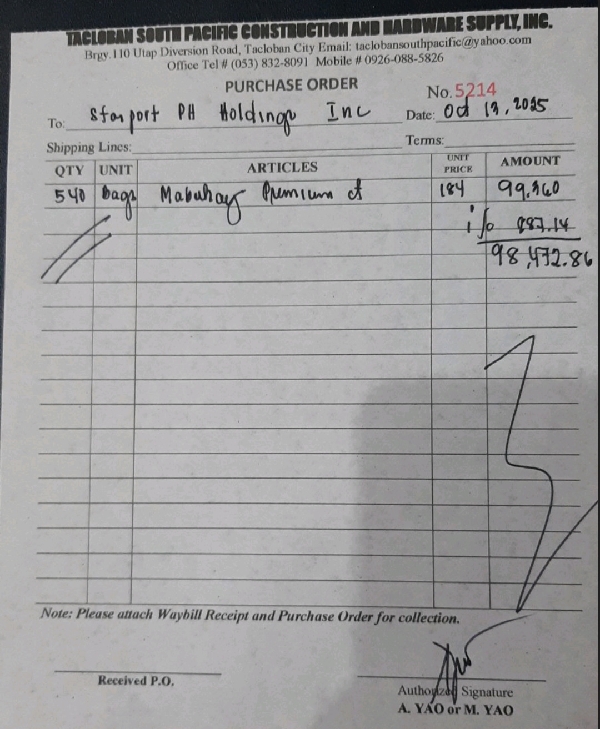 TACLOBAN SOUTH PACIFIC CONSTRUCTION AND HARDWARE SUPPLY, INC.
Brgy.110 Utap Diversion Road, Tacloban City Email: taclobansouthpacific@yahoo.com
Office Tel # (053) 832-8091 Mobile # 0926-088-5826
PURCHASE ORDER
No. 5214
To: Starport PH Holdings Inc Date: Oct 13, 2025
Shipping Lines: Terms:
QTY UNIT ARTICLES UNIT PRICE AMOUNT
540 bags Mabuhay Premium ct 184 99,360
1% 887.14
98,472.86
Note: Please attach Waybill Receipt and Purchase Order for collection.
Received P.O.
Authorized Signature
A. YAO or M. YAO